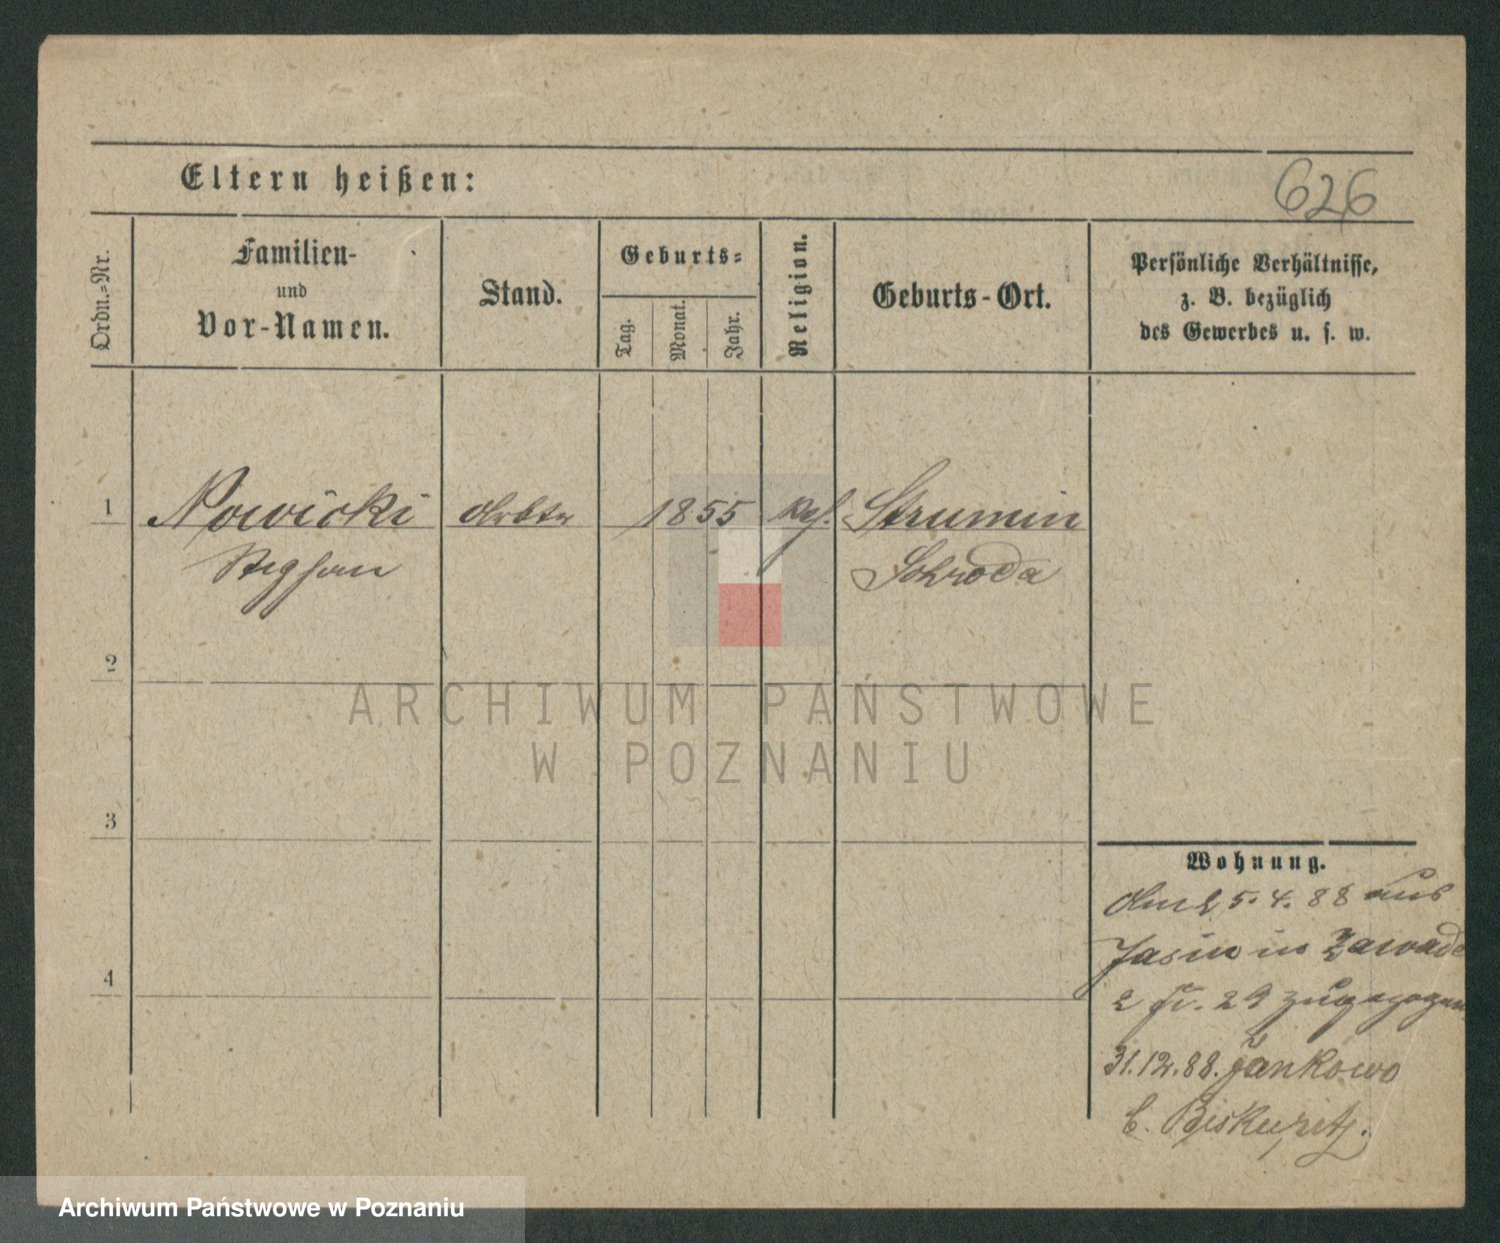 Eltern heißen:
626
Ordn.-Nr.
Familien-
und
Vor-Namen.
Stand.
Geburts-
Tag.
Monat.
Jahr.
Religion.
Geburts-Ort.
Persönliche Verhältnisse,
z. B. bezüglich
des Gewerbes u. s. w.
1 Nowicki Arbtr 1855 Strumin
Stephan Schroda
2
3
4
Wohnung.
Am 25. 4. 88 aus
Jasin in Zawade
2 fr. 29 zugezogen
31.12.88. Jankowo
b. Biskupitz.
ARCHIWUM PAŃSTWOWE
W POZNANIU
Archiwum Państwowe w Poznaniu